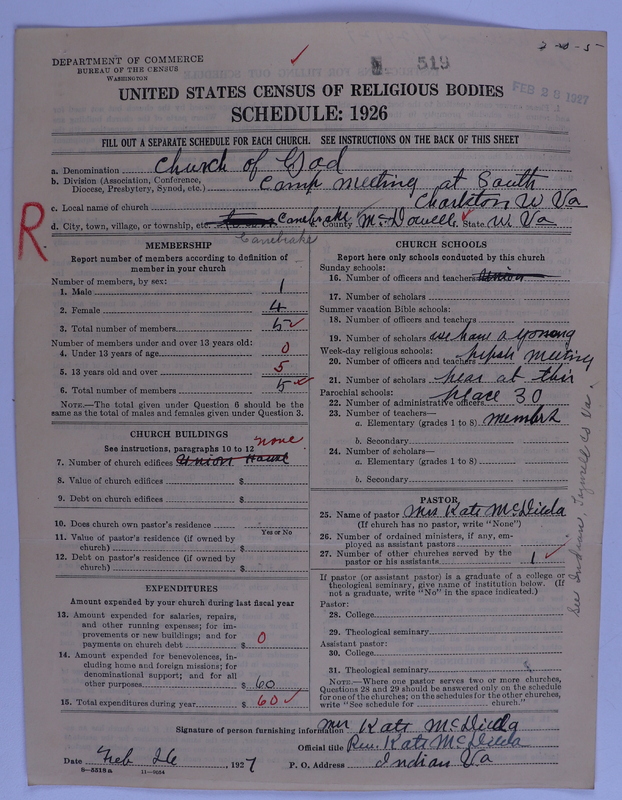 DEPARTMENT OF COMMERCE
BUREAU OF THE CENSUS
WASHINGTON
519
FEB 28 1927
UNITED STATES CENSUS OF RELIGIOUS BODIES
SCHEDULE: 1926
FILL OUT A SEPARATE SCHEDULE FOR EACH CHURCH. SEE INSTRUCTIONS ON THE BACK OF THIS SHEET
a. Denomination Church of God
b. Division (Association, Conference, Diocese, Presbytery, Synod, etc.) Camp meeting at South
Charlston W Va
c. Local name of church
d. City, town, village, or township, etc. Canebrake e. County McDowell State W. Va
Canebrake
R
MEMBERSHIP
Report number of members according to definition of
member in your church
Number of members, by sex:
1. Male 1
2. Female 4
3. Total number of members 5
Number of members under and over 13 years old:
4. Under 13 years of age 0
5. 13 years old and over 5
6. Total number of members 5
NOTE.—The total given under Question 6 should be the
same as the total of males and females given under Question 3.
CHURCH BUILDINGS
See instructions, paragraphs 10 to 12 none
7. Number of church edifices Union House
8. Value of church edifices $
9. Debt on church edifices $
10. Does church own pastor's residence
Yes or No
11. Value of pastor's residence (if owned by
church) $
12. Debt on pastor's residence (if owned by
church) $
EXPENDITURES
Amount expended by your church during last fiscal year
13. Amount expended for salaries, repairs,
and other running expenses; for im-
provements or new buildings; and for
payments on church debt $ 0
14. Amount expended for benevolences, in-
cluding home and foreign missions; for
denominational support; and for all
other purposes $ 60
15. Total expenditures during year $ 60
CHURCH SCHOOLS
Report here only schools conducted by this church
Sunday schools:
16. Number of officers and teachers Union
17. Number of scholars
Summer vacation Bible schools:
18. Number of officers and teachers
19. Number of scholars we have a young
Week-day religious schools:
20. Number of officers and teachers peples meeting
21. Number of scholars hear at this
Parochial schools: place 30
22. Number of administrative officers
23. Number of teachers—
a. Elementary (grades 1 to 8) members
b. Secondary
24. Number of scholars—
a. Elementary (grades 1 to 8)
b. Secondary
PASTOR
25. Name of pastor Mrs Kate McDieda
(If church has no pastor, write "None")
26. Number of ordained ministers, if any, em-
ployed as assistant pastors
27. Number of other churches served by the
pastor or his assistants 1
If pastor (or assistant pastor) is a graduate of a college or
theological seminary, give name of institution below. (If
not a graduate, write "No" in the space indicated.)
Pastor:
28. College
29. Theological seminary
Assistant pastor:
30. College
31. Theological seminary
NOTE.—Where one pastor serves two or more churches,
Questions 28 and 29 should be answered only on the schedule
for one of the churches; on the schedules for the other churches,
write "See schedule for church."
See Indian, Tazwell co Va.
Signature of person furnishing information Mrs Kate McDieda
Official title Rev. Kate McDieda
Date Feb 26, 1927 P. O. Address Indian Va
8—5518a 11—9054